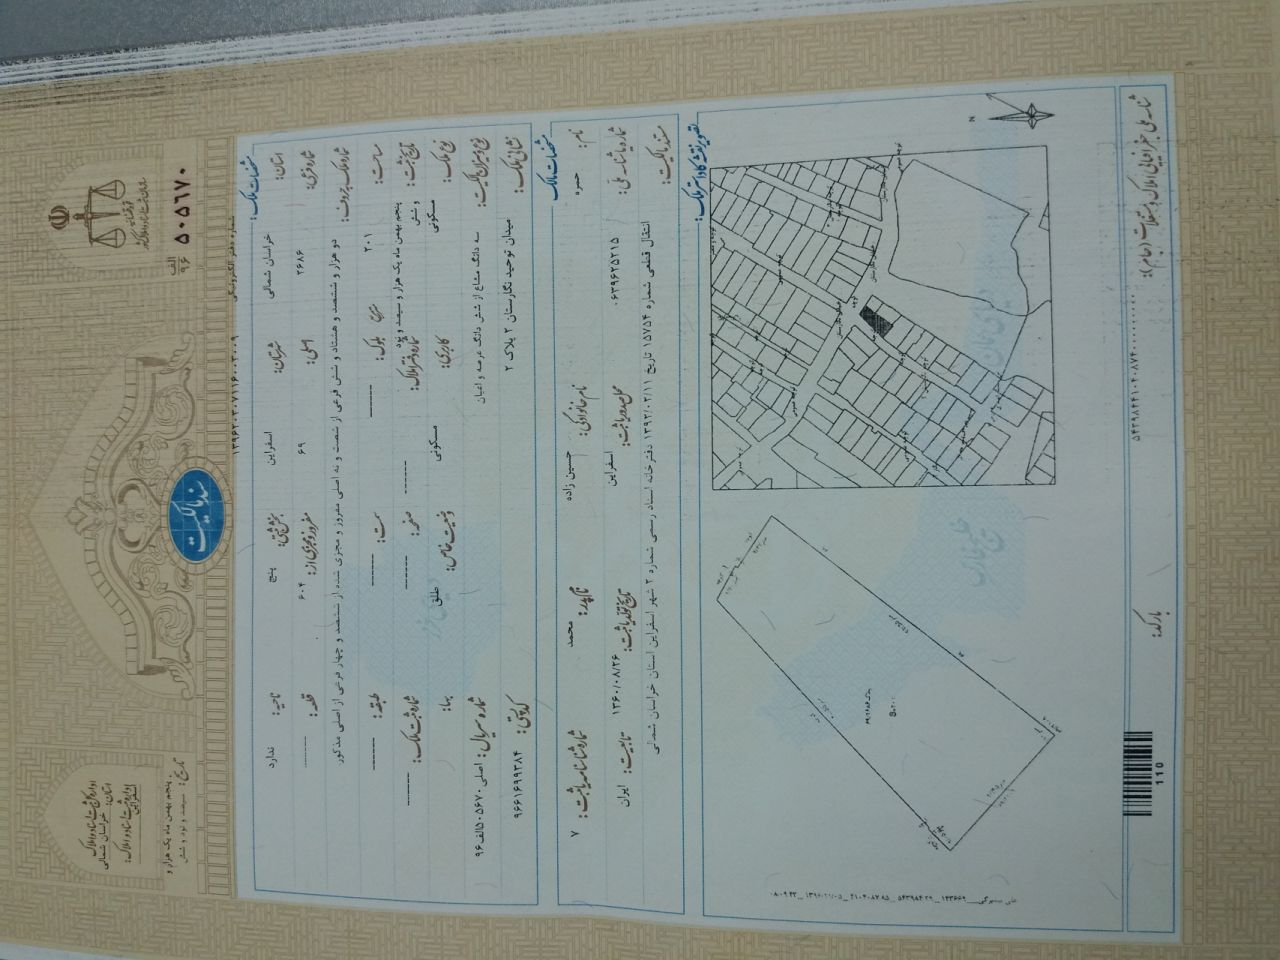 الف
۹۶
۵۰۵۶۷۰
سازمان ثبت اسناد و املاک کشور
سند مالکیت
اداره کل ثبت اسناد و املاک
استان: خراسان شمالی
اداره ثبت اسناد و املاک:
اسفراین
تاریخ: پنجم بهمن ماه یک هزار و
سیصد و نود و شش
شماره دفتر الکترونیکی
مشخصات ملک:
استان: خراسان شمالی شهرستان: اسفراین بخش ثبتی: پنج ناحیه: ندارد
شماره فرعی: ۲۶۸۶ اصلی: ۶۹ مفروز و مجزی از: ۶۰۴ قطعه: --------
شماره ملک به حروف: دو هزار و ششصد و هشتاد و شش فرعی از شصت و نه اصلی مفروز و مجزی شده از ششصد و چهار فرعی از اصلی مذکور
مساحت: ۲۰۱ بلوک: -------- سمت: -------- طبقه: --------
تاریخ ثبت: پنجم بهمن ماه یک هزار و سیصد و نود و شش شماره دفتر املاک: -------- صفحه: -------- شماره ثبت ملک: --------
نوع ملک: مسکونی کاربری: مسکونی وضعیت خاص: طلق بها:
نوع و میزان مالکیت: سه دانگ مشاع از شش دانگ عرصه و اعیان شماره سریال: اصلی ۵۰۵۶۷۰ الف ۹۶
نشانی ملک: میدان توحید نگارستان ۲ پلاک ۲ کدپستی: ۹۶۶۱۶۹۹۳۸۴
مشخصات مالک:
نام: حمزه نام خانوادگی: حسین زاده نام پدر: محمد شماره شناسنامه/ثبت: ۷
شماره/شناسه ملی: ۰۶۳۹۶۲۵۲۱۵ محل صدور/ثبت: اسفراین تاریخ تولد/ثبت: ۱۳۶۰/۰۸/۲۶ تابعیت: ایران
مستند مالکیت: انتقال قطعی شماره ۱۵۷۵۴ تاریخ ۱۳۹۲/۰۲/۱۱ دفترخانه اسناد رسمی شماره ۲ شهر اسفراین استان خراسان شمالی
تصویر نقشه کاداستر ملک:
N
خلیج فارس
شناسه ملی جغرافیایی املاک و مستغلات (جام):
بارکد:
110